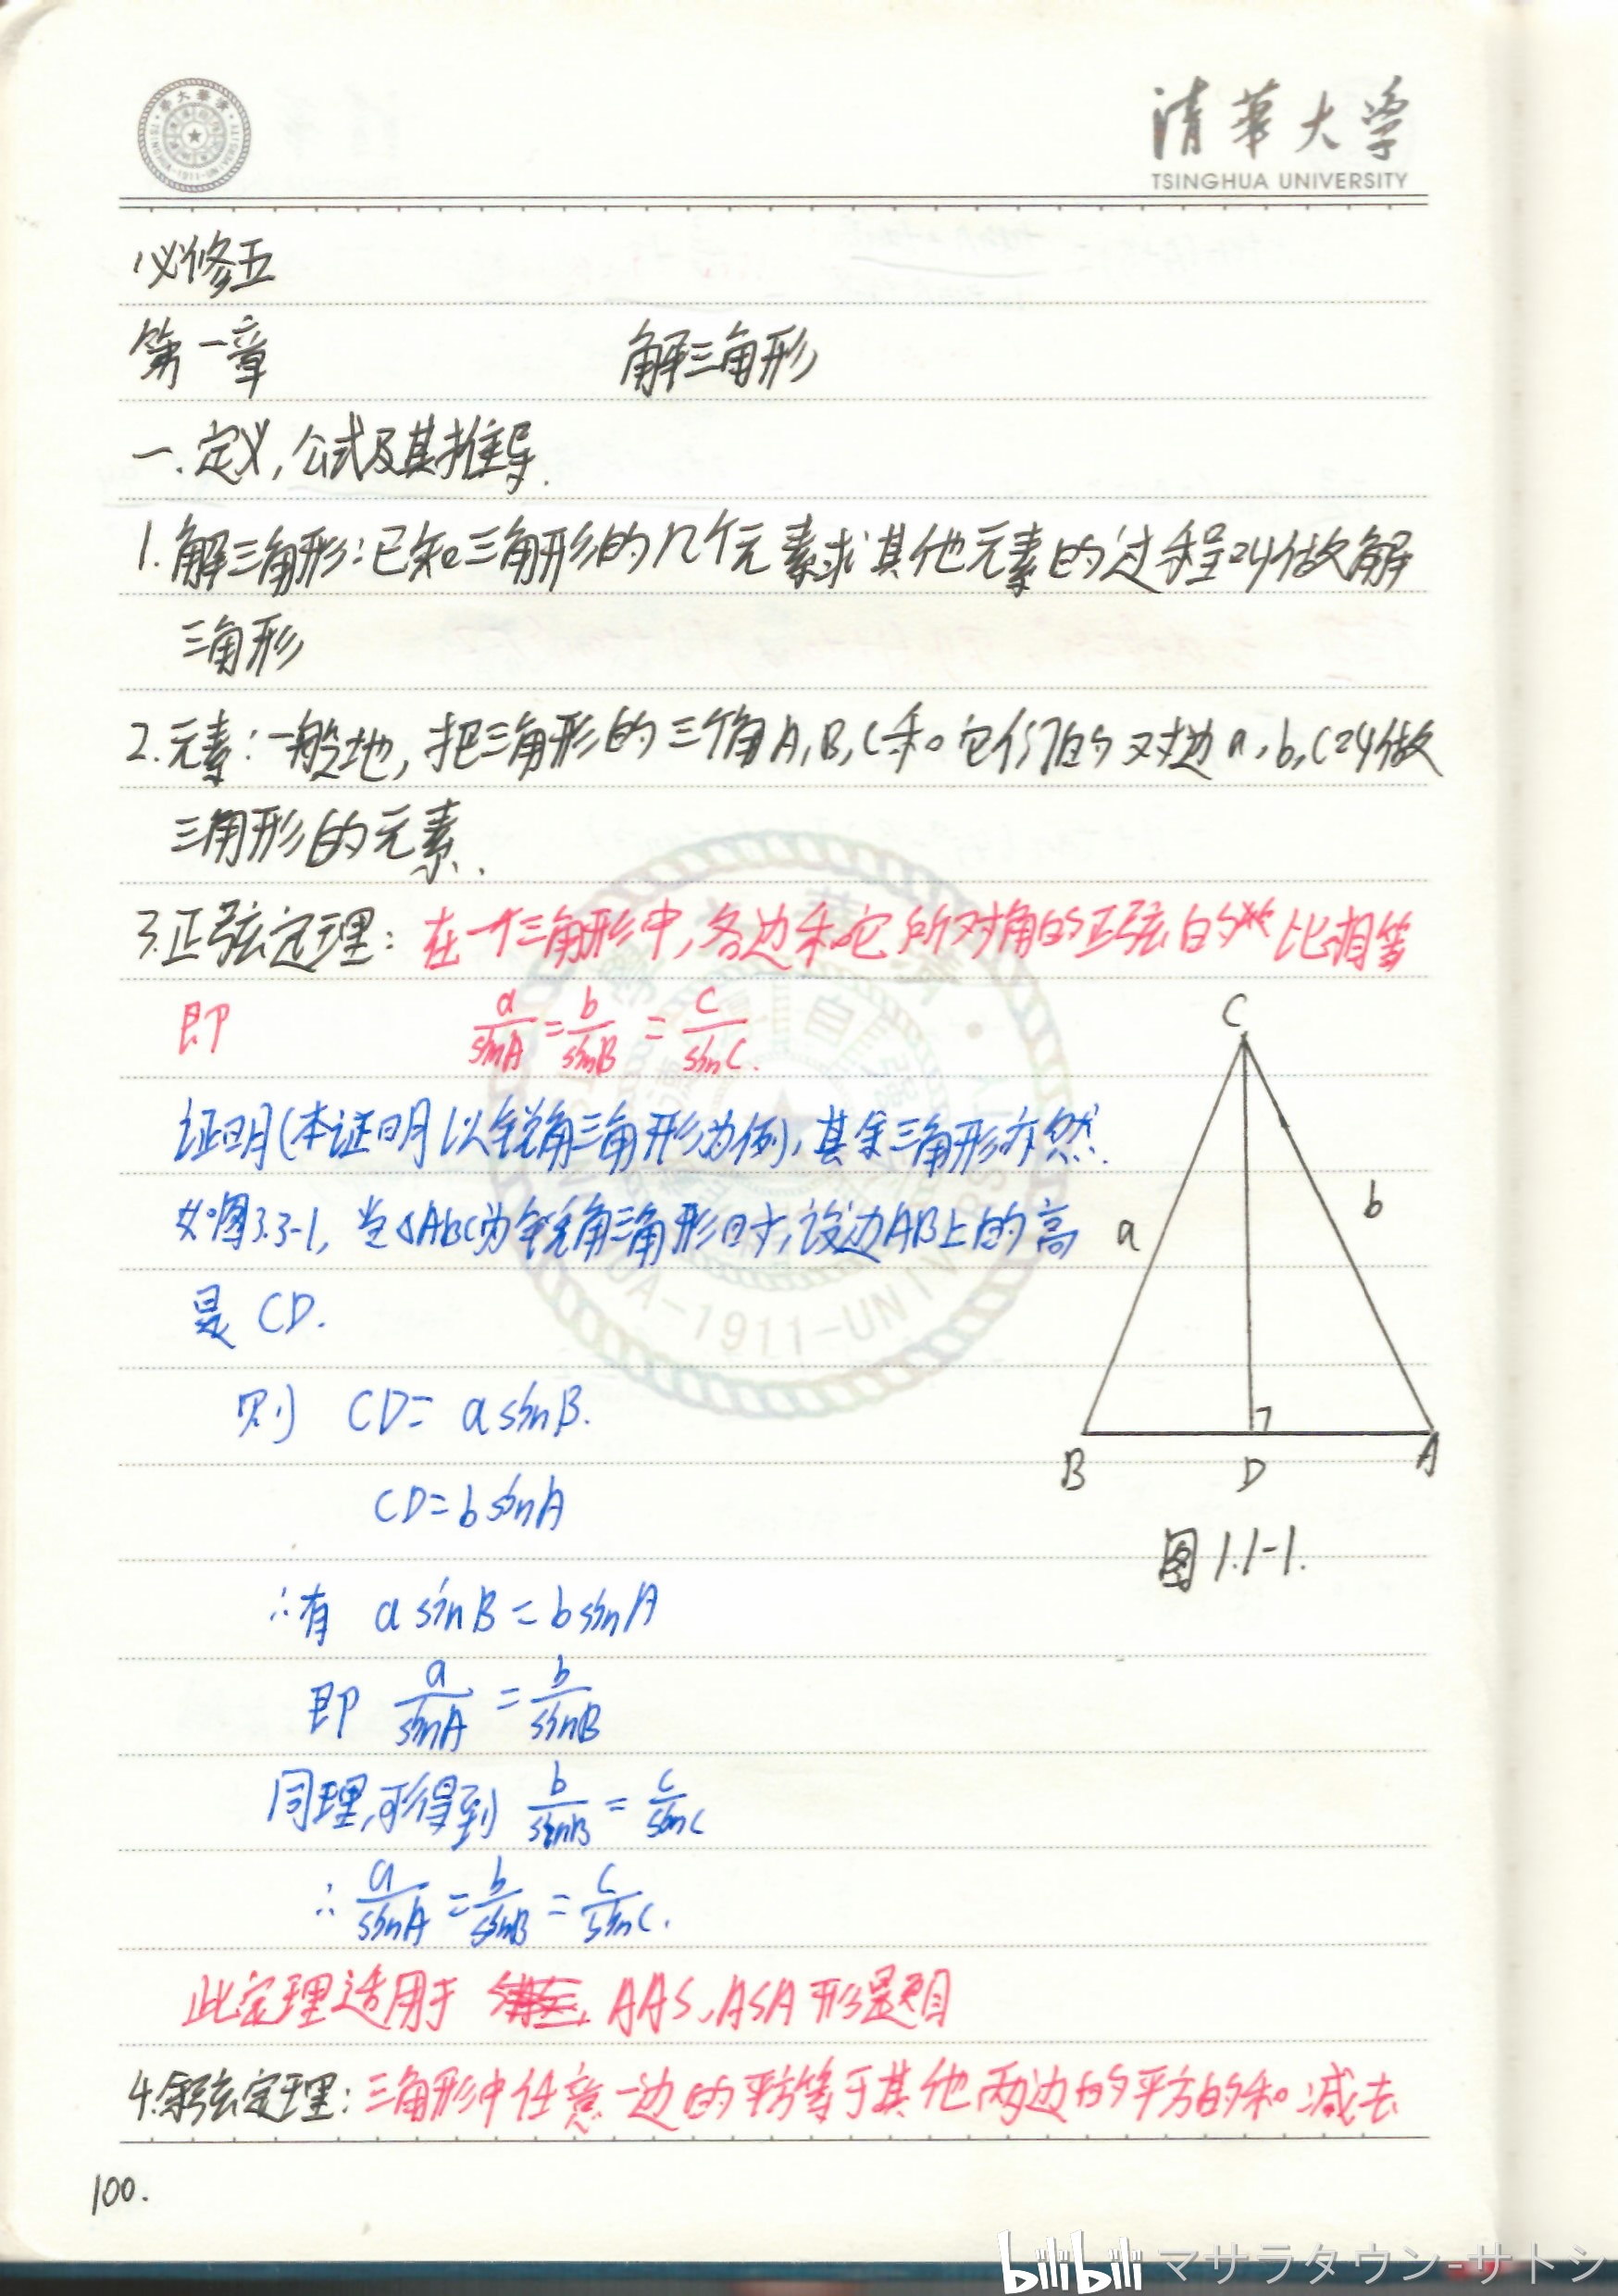 清华大学
TSINGHUA UNIVERSITY
必修五
第一章 解三角形
一.定义,公式及其推导.
1.解三角形:已知三角形的几个元素求其他元素的过程叫做解
三角形
2.元素:一般地,把三角形的三个角A,B,C和它们的对边a,b,c叫做
三角形的元素.
3.正弦定理:在一个三角形中,各边和它所对角的正弦的比相等
即 a/sinA = b/sinB = c/sinC.
证明(本证明以锐角三角形为例),其余三角形亦然.
如图3.3-1,当△ABC为锐角三角形时,设边AB上的高
是 CD.
则 CD = a sinB.
CD = b sinA
∴有 a sinB = b sinA
即 a/sinA = b/sinB
同理,可得到 b/sinB = c/sinC
∴ a/sinA = b/sinB = c/sinC.
C
a
b
B
D
A
图1.1-1.
此定理适用于 AAS、ASA形题目
4.余弦定理:三角形中任意一边的平方等于其他两边的平方的和减去
100.
-1911-UNIVERSI
bilibili マサラタウン-サトシ